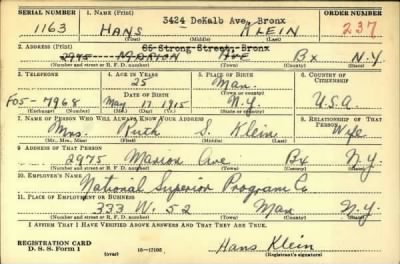 SERIAL NUMBER 1. NAME (Print) 3424 DeKalb Ave, Bronx ORDER NUMBER
1163 HANS KLEIN 237
(First) (Middle) (Last)
2. ADDRESS (Print) 66 Strong Street, Bronx
2975 MARION AVE Bx N.Y.
(Number and street or R. F. D. number) (Town) (County) (State)
3. TELEPHONE 4. AGE IN YEARS 5. PLACE OF BIRTH 6. COUNTRY OF CITIZENSHIP
25 Man.
DATE OF BIRTH (Town or county)
FO5-7968 May 17 1915 N.Y. U.S.A.
(Exchange) (Number) (Mo.) (Day) (Yr.) (State or country)
7. NAME OF PERSON WHO WILL ALWAYS KNOW YOUR ADDRESS 8. RELATIONSHIP OF THAT PERSON
Mrs. Ruth S. Klein Wife
(Mr., Mrs., Miss) (First) (Middle) (Last)
9. ADDRESS OF THAT PERSON
2975 Marion Ave Bx N.Y.
(Number and street or R. F. D. number) (Town) (County) (State)
10. EMPLOYER'S NAME
National Superior Program Co
11. PLACE OF EMPLOYMENT OR BUSINESS
333 W. 52 Man N.Y.
(Number and street or R. F. D. number) (Town) (County) (State)
I AFFIRM THAT I HAVE VERIFIED ABOVE ANSWERS AND THAT THEY ARE TRUE.
REGISTRATION CARD
D. S. S. Form 1 (over) 16-17105 Hans Klein
(Registrant's signature)